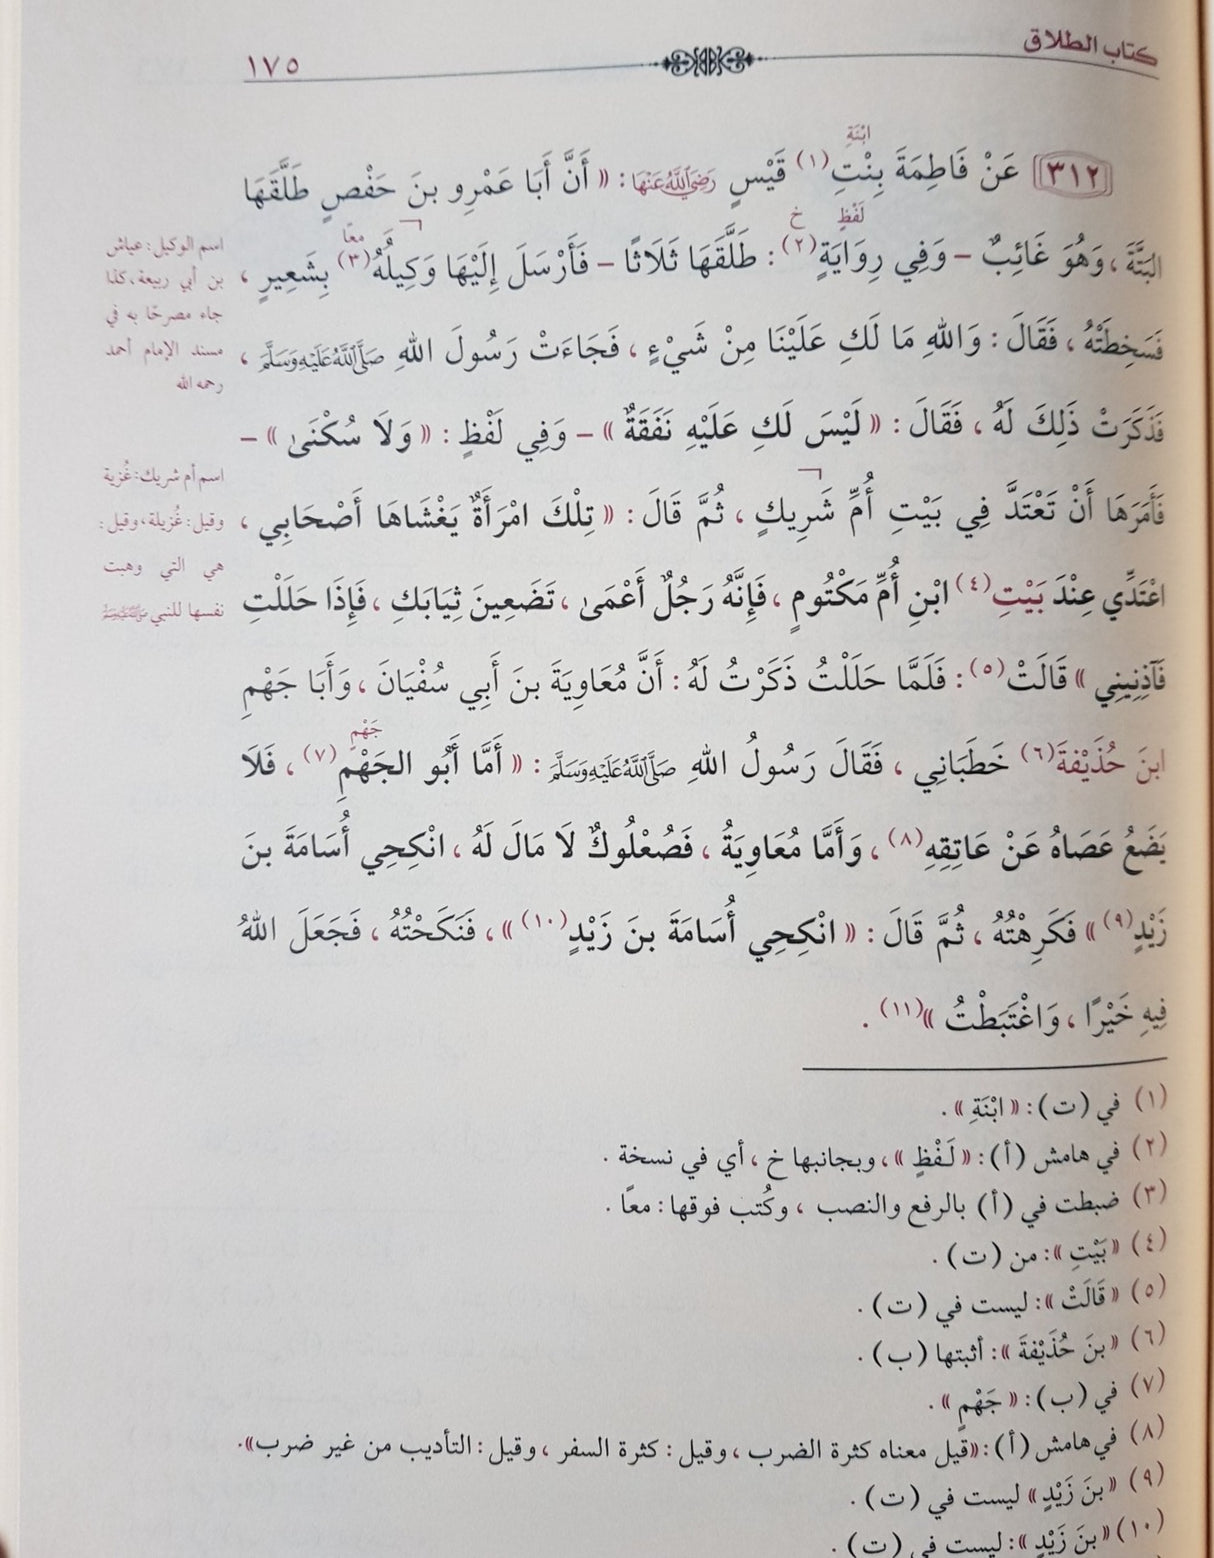 كتاب الطلاق
١٧٥
ابْنَةِ
٣١٢ عَنْ فَاطِمَةَ بِنْتِ(١) قَيْسٍ رَضِيَ اللَّهُ عَنْهَا: « أَنَّ أَبَا عَمْرِو بنَ حَفْصٍ طَلَّقَهَا
لَفْظٍ خ
معًا
البَتَّةَ ، وَهُوَ غَائِبٌ – وَفِي رِوَايَةٍ(٢) : طَلَّقَهَا ثَلَاثًا – فَأَرْسَلَ إِلَيْهَا وَكِيلُهُ(٣) بِشَعِيرٍ ،
فَسَخِطَتْهُ ، فَقَالَ : وَاللهِ مَا لَكِ عَلَيْنَا مِنْ شَيْءٍ ، فَجَاءَتْ رَسُولَ اللهِ صَلَّى اللَّهُ عَلَيْهِ وَسَلَّمَ ،
فَذَكَرَتْ ذَلِكَ لَهُ ، فَقَالَ : « لَيْسَ لَكِ عَلَيْهِ نَفَقَةٌ » – وَفِي لَفْظٍ : « وَلَا سُكْنَى » –
فَأَمَرَهَا أَنْ تَعْتَدَّ فِي بَيْتِ أُمِّ شَرِيكٍ ، ثُمَّ قَالَ : « تِلْكَ امْرَأَةٌ يَغْشَاهَا أَصْحَابِي ،
اعْتَدِّي عِنْدَ بَيْتِ(٤) ابْنِ أُمِّ مَكْتُومٍ ، فَإِنَّهُ رَجُلٌ أَعْمَى ، تَضَعِينَ ثِيَابَكِ ، فَإِذَا حَلَلْتِ
فَآذِنِينِي » قَالَتْ(٥) : فَلَمَّا حَلَلْتُ ذَكَرْتُ لَهُ : أَنَّ مُعَاوِيَةَ بنَ أَبِي سُفْيَانَ ، وَأَبَا جَهْمِ
جَهْمٍ
ابنَ حُذَيْفَةَ(٦) خَطَبَانِي ، فَقَالَ رَسُولُ اللهِ صَلَّى اللَّهُ عَلَيْهِ وَسَلَّمَ : « أَمَّا أَبُو الجَهْمِ(٧) ، فَلَا
يَضَعُ عَصَاهُ عَنْ عَاتِقِهِ(٨) ، وَأَمَّا مُعَاوِيَةُ ، فَصُعْلُوكٌ لَا مَالَ لَهُ ، انْكِحِي أُسَامَةَ بنَ
زَيْدٍ(٩) » فَكَرِهْتُهُ ، ثُمَّ قَالَ : « انْكِحِي أُسَامَةَ بنَ زَيْدٍ(١٠) » ، فَنَكَحْتُهُ ، فَجَعَلَ اللهُ
فِيهِ خَيْرًا ، وَاغْتَبَطْتُ »(١١) .
اسم الوكيل: عياش
بن أبي ربيعة، كذا
جاء مصرحًا به في
مسند الإمام أحمد
رحمه الله
اسم أم شريك: غُزية
وقيل: غُزيلة، وقيل:
هي التي وهبت
نفسها للنبي صَلَّى اللَّهُ عَلَيْهِ وَسَلَّمَ
(١) في (ت): « ابْنَةِ » .
(٢) في هامش (أ): « لَفْظٍ »، وبجانبها خ ، أي في نسخة .
(٣) ضبطت في (أ) بالرفع والنصب ، وكُتب فوقها: معًا .
(٤) « بَيْتِ »: من (ت) .
(٥) « قَالَتْ »: ليست في (ت) .
(٦) « بنَ حُذَيْفةَ »: أثبتها (ب) .
(٧) في (ب): « جَهْمٍ » .
(٨) في هامش (أ): «قيل معناه كثرة الضرب ، وقيل: كثرة السفر ، وقيل: التأديب من غير ضرب».
(٩) « بنَ زَيْدٍ » ليست في (ت) .
(١٠) « بنَ زَيْدٍ »: ليست في (ت) .